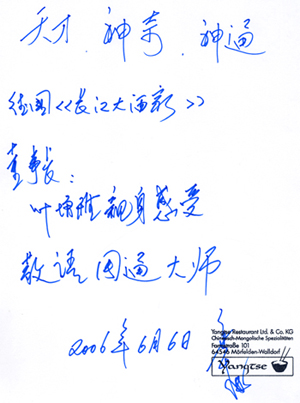 天才、神奇、神通
德国<<长江大酒家>>
董事长:
叶 亲身感受
敬语国通大师
2006年6月6日
Yangtse Restaurant Ltd. & Co. KG
Chinesisch-Mongolische Spezialitäten
64546 Mörfelden-Walldorf
Yangtse